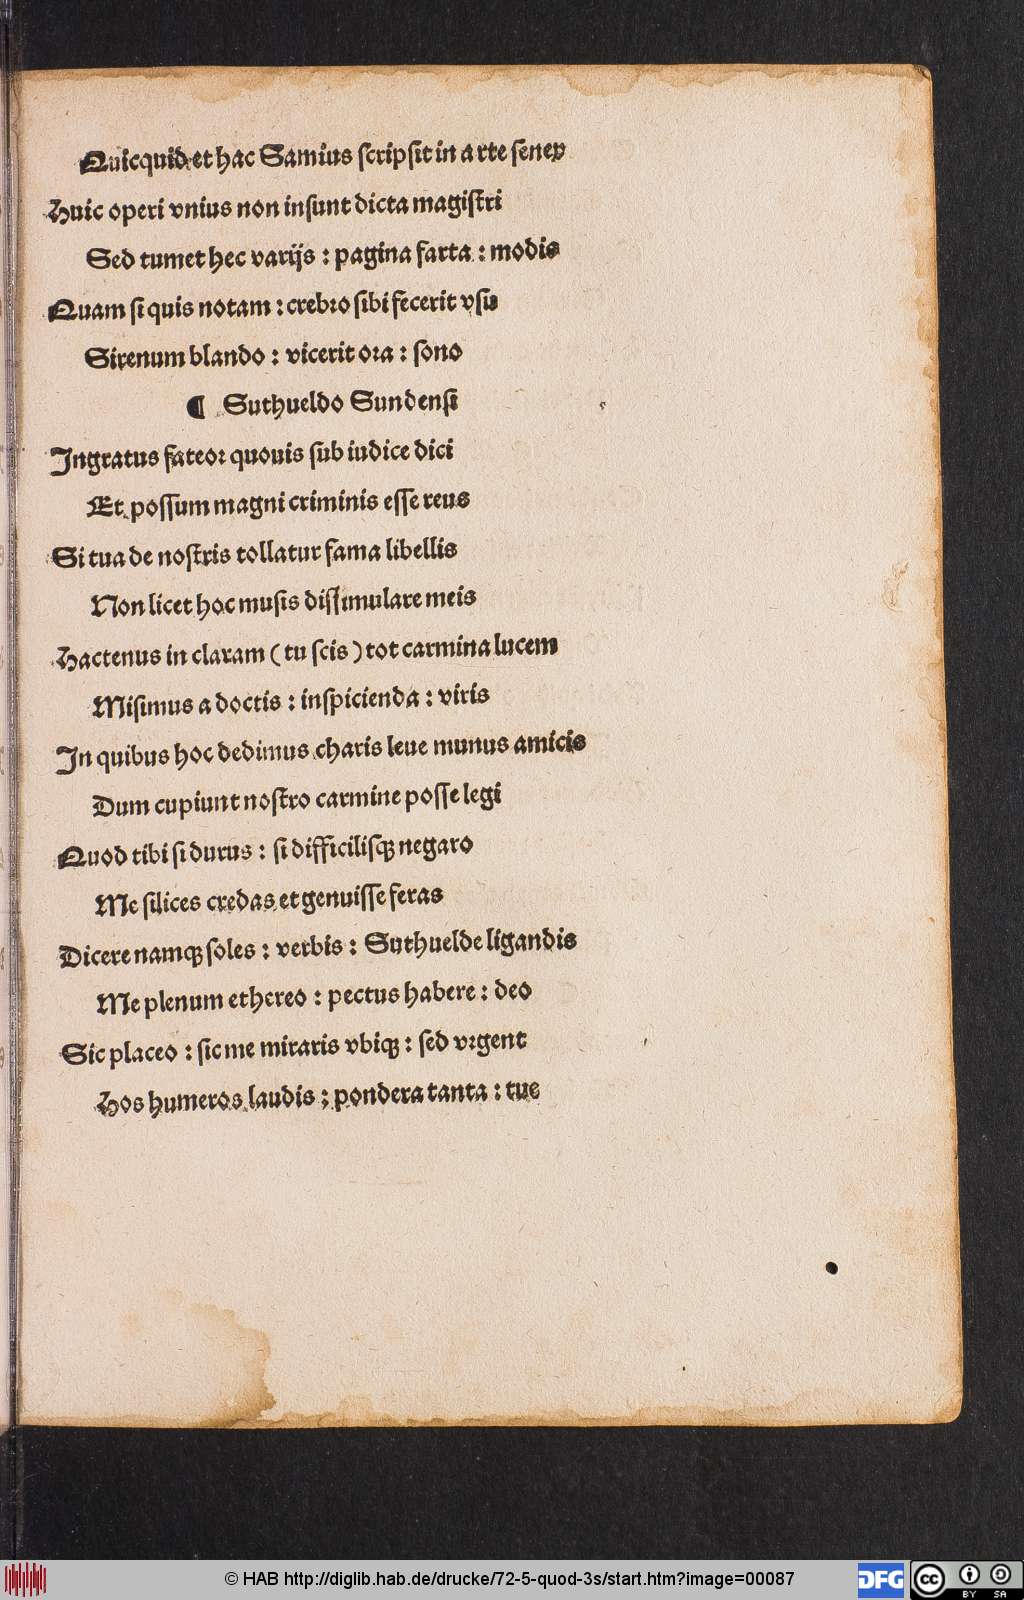 Quicquid et hac Samius ſcripſit in arte ſenex
Huic operi vnius non inſunt dicta magiſtri
Sed tumet hec varijs : pagina farta : modis
Quam ſi quis notam : crebꝛo ſibi fecerit vſu
Sirenum blando : vicerit oꝛa : ſono
¶ Suthueldo Sundenſi
Ingratus fateoꝛ quouis ſub iudice dici
Et poſſum magni criminis eſſe reus
Si tua de noſtris tollatur fama libellis
Non licet hoc muſis diſſimulare meis
Hactenus in claram ( tu ſcis ) tot carmina lucem
Miſimus a doctis : inſpicienda : viris
In quibus hoc dedimus charis leue munus amicis
Dum cupiunt noſtro carmine poſſe legi
Quod tibi ſi durus : ſi difficiliſqꝫ negaro
Me ſilices credas et genuiſſe feras
Dicere namqꝫ ſoles : verbis : Suthuelde ligandis
Me plenum ethereo : pectus habere : deo
Sic placeo : ſic me miraris vbiqꝫ : ſed vꝛgent
Hos humeros laudis : pondera tanta : tue
© HAB http://diglib.hab.de/drucke/72-5-quod-3s/start.htm?image=00087
DFG
cc BY SA